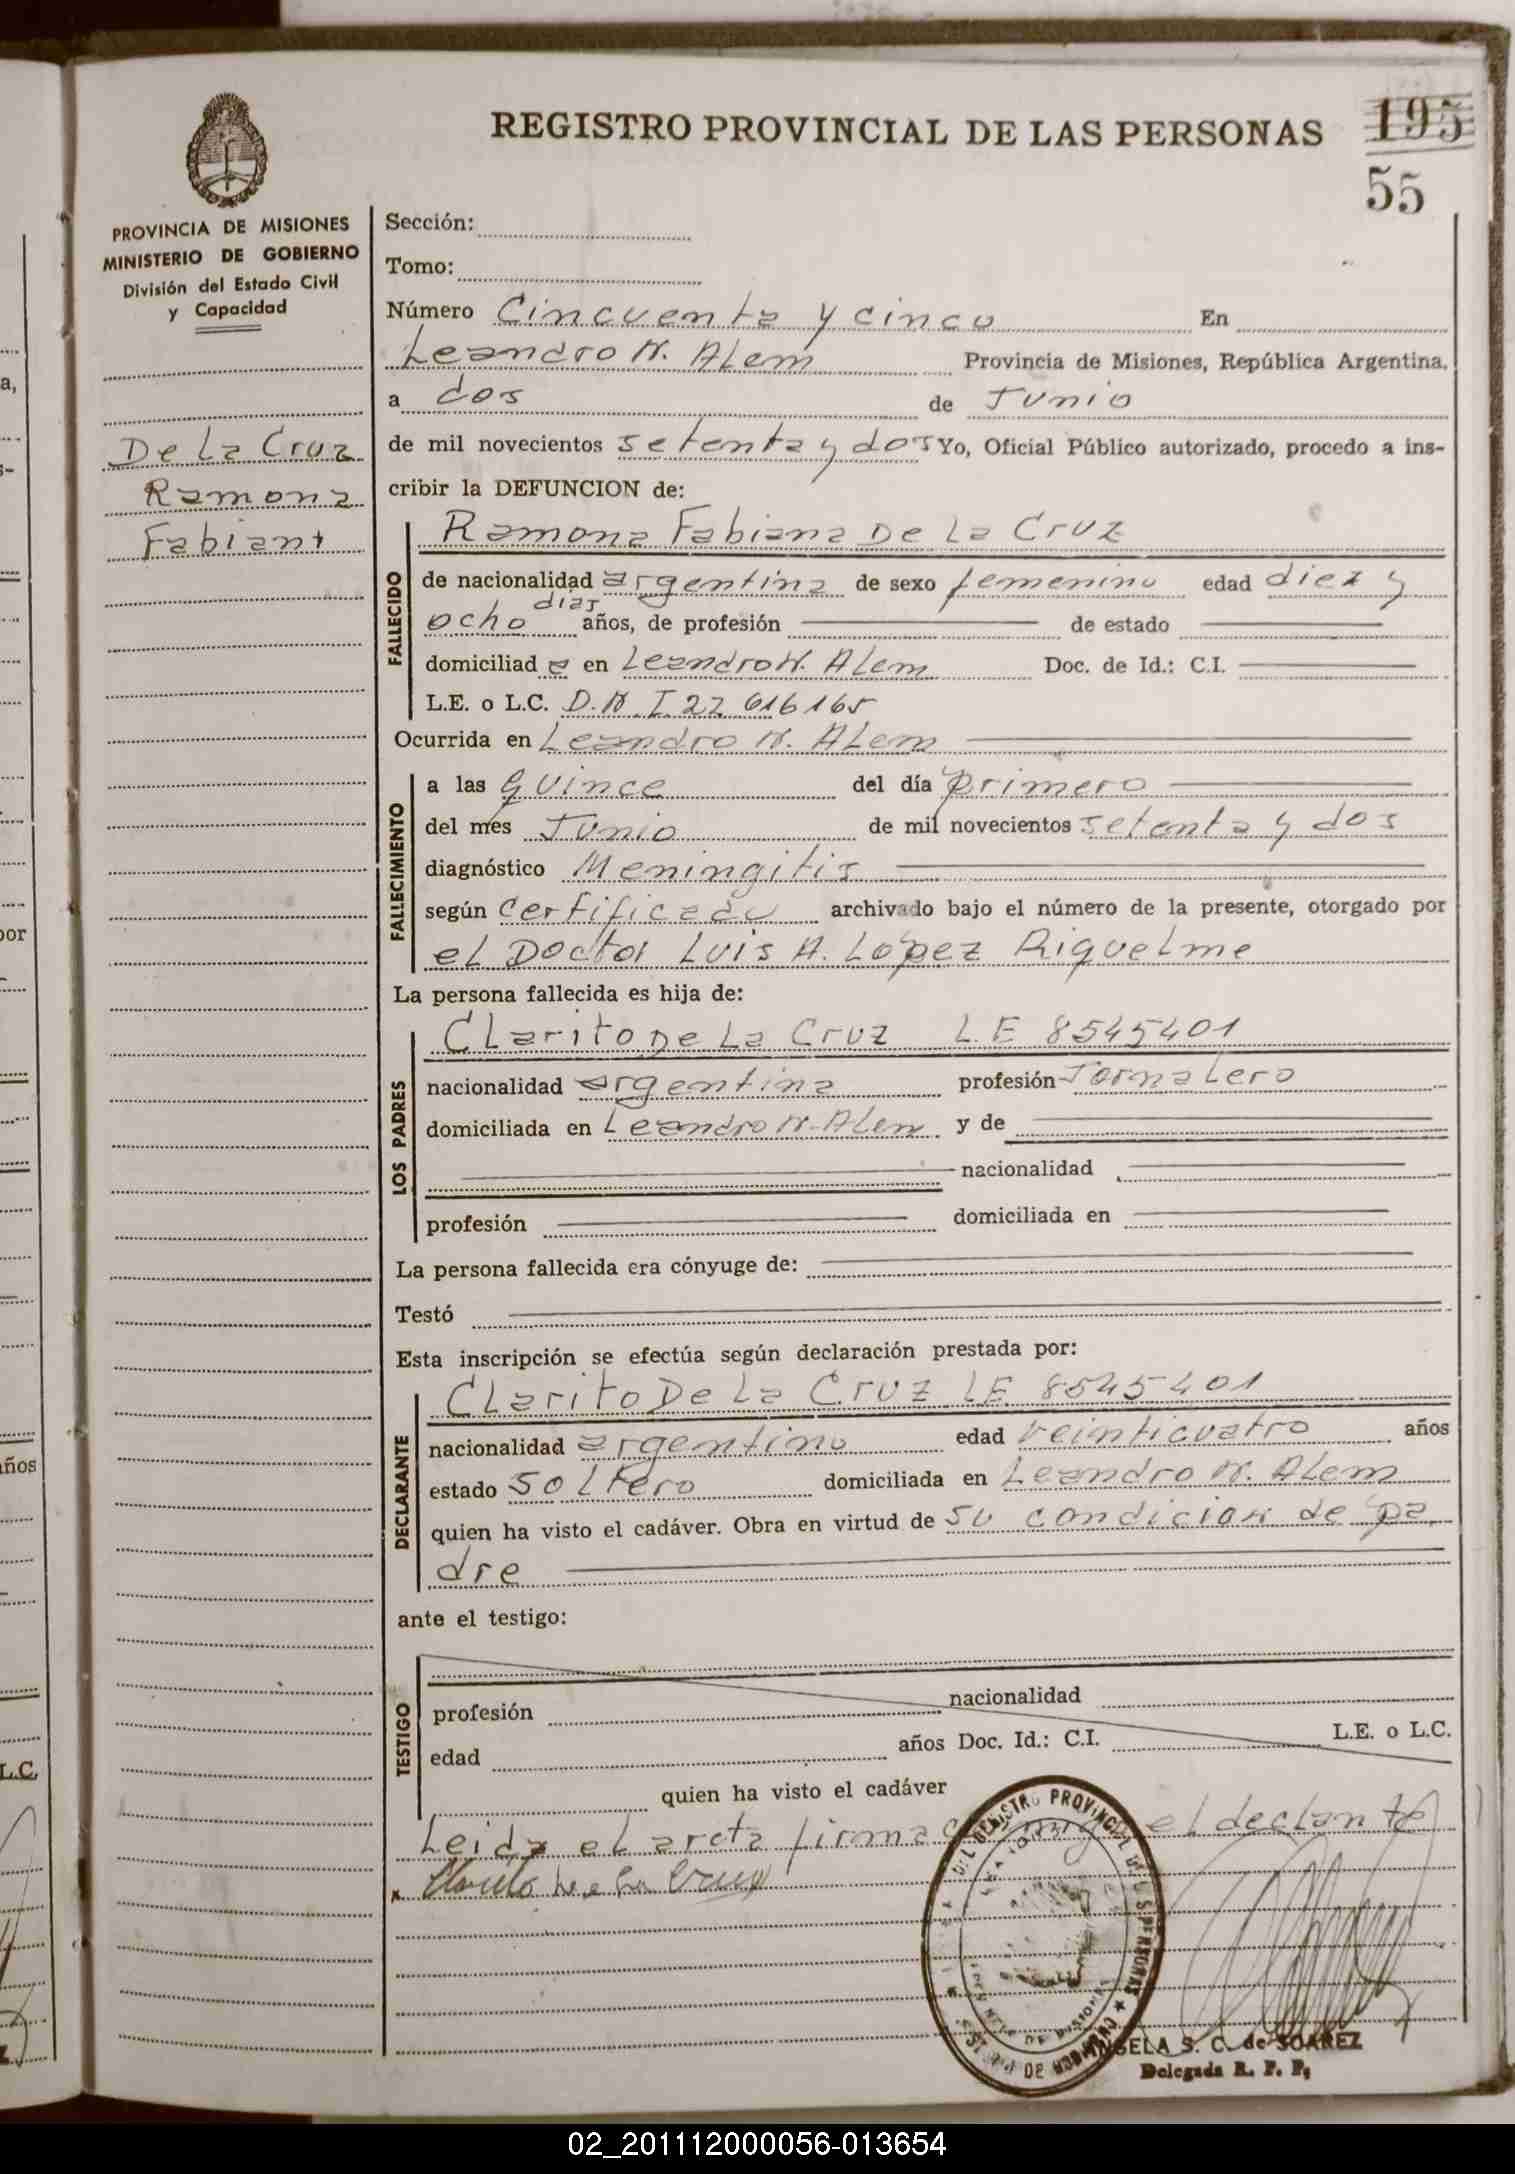 REGISTRO PROVINCIAL DE LAS PERSONAS
195
55
PROVINCIA DE MISIONES
MINISTERIO DE GOBIERNO
División del Estado Civil
y Capacidad
De La Cruz
Ramona
Fabiana
Sección:
Tomo:
Número Cincuenta y cinco En
Leandro N. Alem Provincia de Misiones, República Argentina,
a dos de Junio
de mil novecientos setenta y dos Yo, Oficial Público autorizado, procedo a ins-
cribir la DEFUNCION de:
FALLECIDO
Ramona Fabiana De La Cruz
de nacionalidad argentina de sexo femenino edad diez y
ocho dias años, de profesión de estado
domiciliad a en Leandro N. Alem Doc. de Id.: C.I.
L.E. o L.C. D.N.I. 22 616165
Ocurrida en Leandro N. Alem
FALLECIMIENTO
a las quince del día primero
del mes Junio de mil novecientos setenta y dos
diagnóstico Meningitis
según certificado archivado bajo el número de la presente, otorgado por
el Doctor Luis A. Lopez Riquelme
La persona fallecida es hija de:
LOS PADRES
Clarito De La Cruz L.E 8545401
nacionalidad argentina profesión Jornalero
domiciliada en Leandro N. Alem y de
nacionalidad
profesión domiciliada en
La persona fallecida era cónyuge de:
Testó
Esta inscripción se efectúa según declaración prestada por:
DECLARANTE
Clarito De La Cruz L.E. 8545401
nacionalidad argentino edad veinticuatro años
estado soltero domiciliada en Leandro N. Alem
quien ha visto el cadáver. Obra en virtud de su condicion de pa
dre
ante el testigo:
TESTIGO
profesión nacionalidad
edad años Doc. Id.: C.I. L.E. o L.C.
quien ha visto el cadáver
Leida el arcta firma el declante
x Clarito De La Cruz
ANGELA S. C. de SOAREZ
Delegada R. P. P.
años
L.C.
02_201112000056-013654